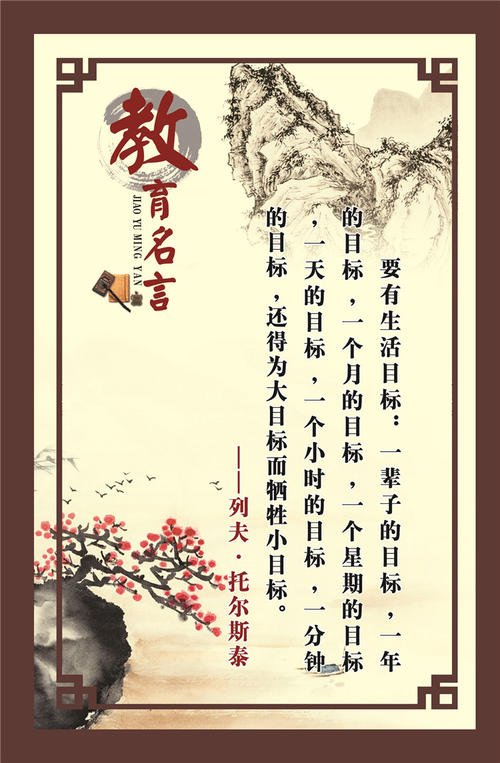 教育名言
JIAO YU MING YAN
要有生活目标：一辈子的目标，一年
的目标，一个月的目标，一个星期的目标
，一天的目标，一个小时的目标，一分钟
的目标，还得为大目标而牺牲小目标。
——列夫·托尔斯泰